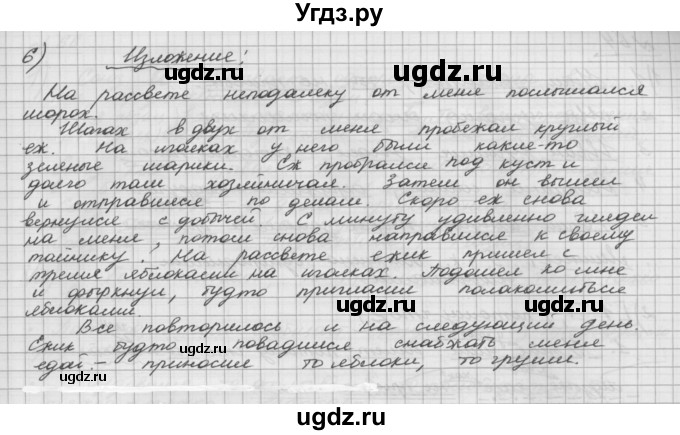 Угдз.ру
6) Изложение:
На рассвете неподалеку от меня послышался
шорох.
Шагах в двух от меня пробежал круглый
еж. На иголках у него были какие-то
зеленые шарики. Еж пробрался под куст и
долго там хозяйничал. Затем он вышел
и отправился по делам. Скоро еж снова
вернулся с добычей. С минуту удивленно глядел
на меня, потом снова направился к своему
тайнику. На рассвете ежик пришел с
тремя яблоками на иголках. Подошел ко мне
и фыркнул, будто пригласил полакомиться
яблоками.
Все повторилось и на следующий день.
Ежик будто повадился снабжать меня
едой - приносил то яблоки, то груши.
ugdz.ru
ugdz.ru
ugdz.ru
ugdz.ru
ugdz.ru
ugdz.ru
ugdz.ru
ugdz.ru
ugdz.ru